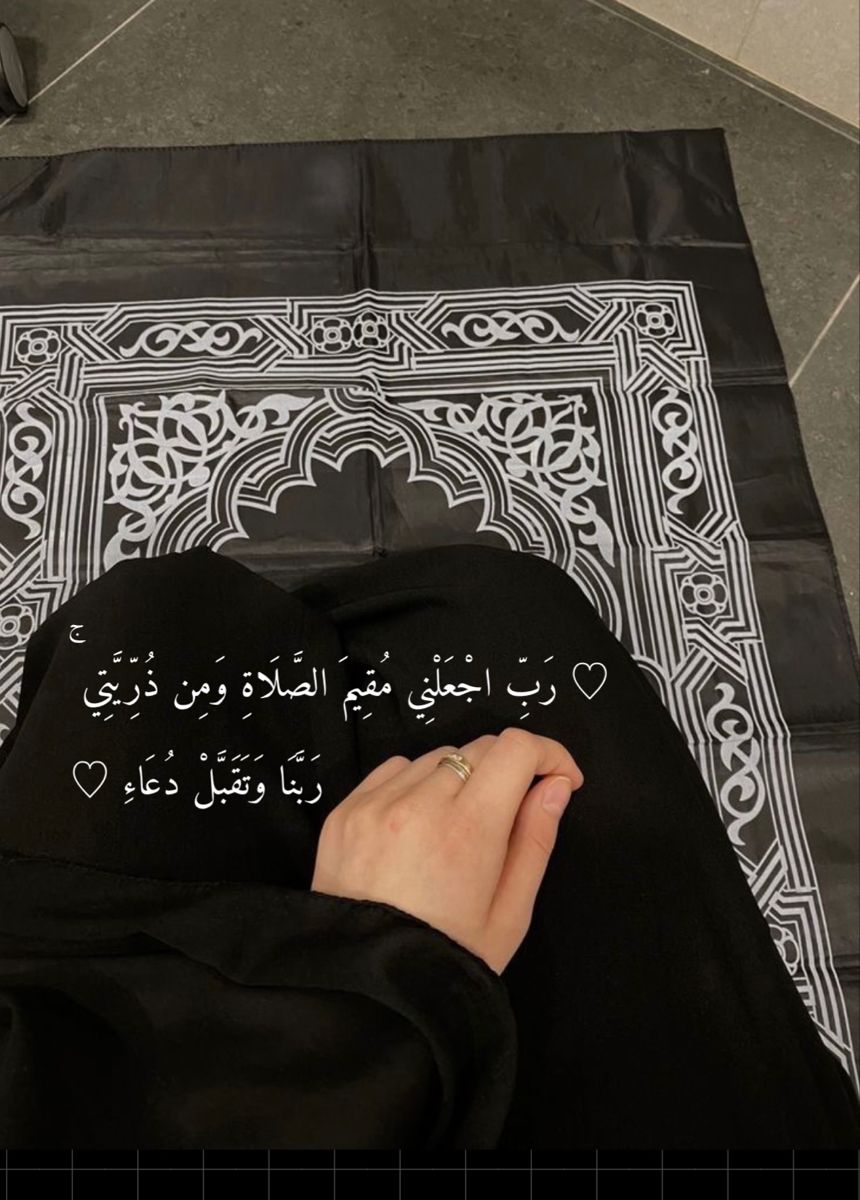 ♡ رَبِّ اجْعَلْنِي مُقِيمَ الصَّلَاةِ وَمِن ذُرِّيَّتِي ۚ
رَبَّنَا وَتَقَبَّلْ دُعَاءِ ♡